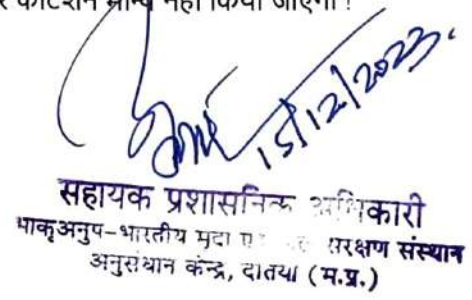 र कोटेशन मान्य नहीं किया जाएगा।
15/12/2023.
सहायक प्रशासनिक अधिकारी
भाकृअनुप-भारतीय मृदा एवं संरक्षण संस्थान
अनुसंधान केन्द्र, दतिया (म.प्र.)